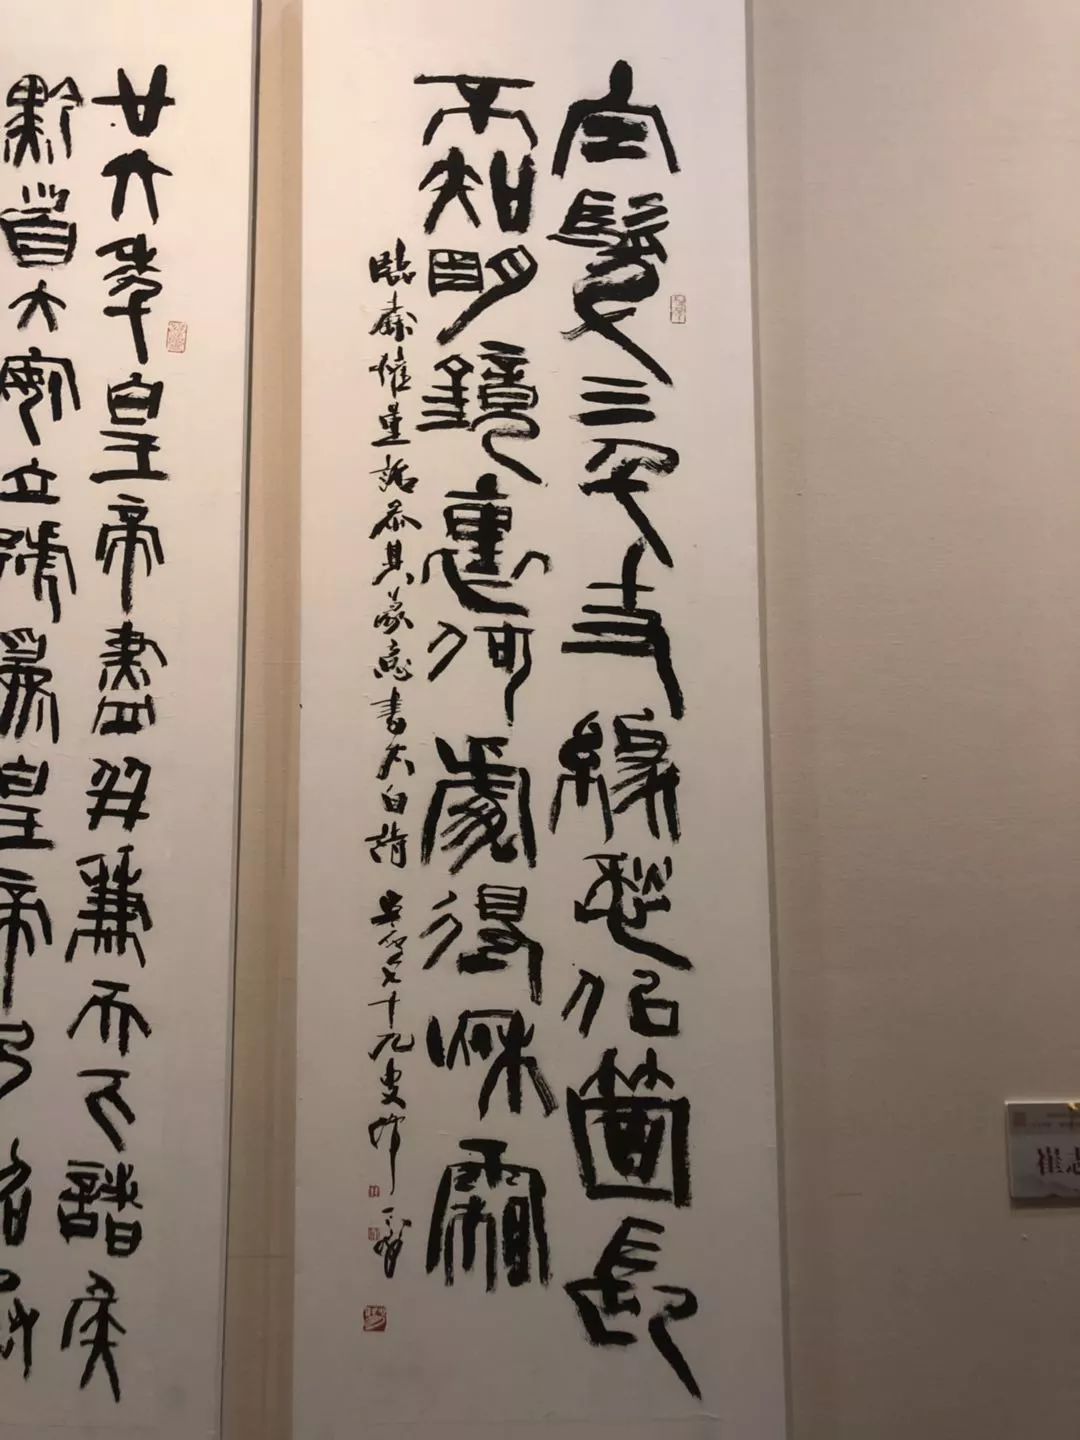 白髮三千丈緣愁似箇長
不知明鏡裏何處得秋霜
臨秦權量詔 其篆意書太白詩 七十九叟
廿六年皇帝盡并兼天下諸侯
黔首大安立號為皇帝乃詔
崔志